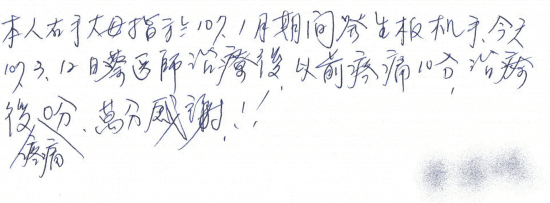 本人右手大母指於107.1月期間発生板机手.今天
107.3.12日蔡医師治療後,以前疼痛10分,治療
後0分.萬分感謝.!!
疼痛